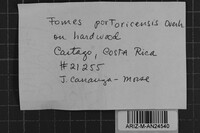 Fomes portoricensis Overh
on hardwood
Cartago, Costa Rica
#21255
J. Carranza-Morse
ARIZ-M-AN24540